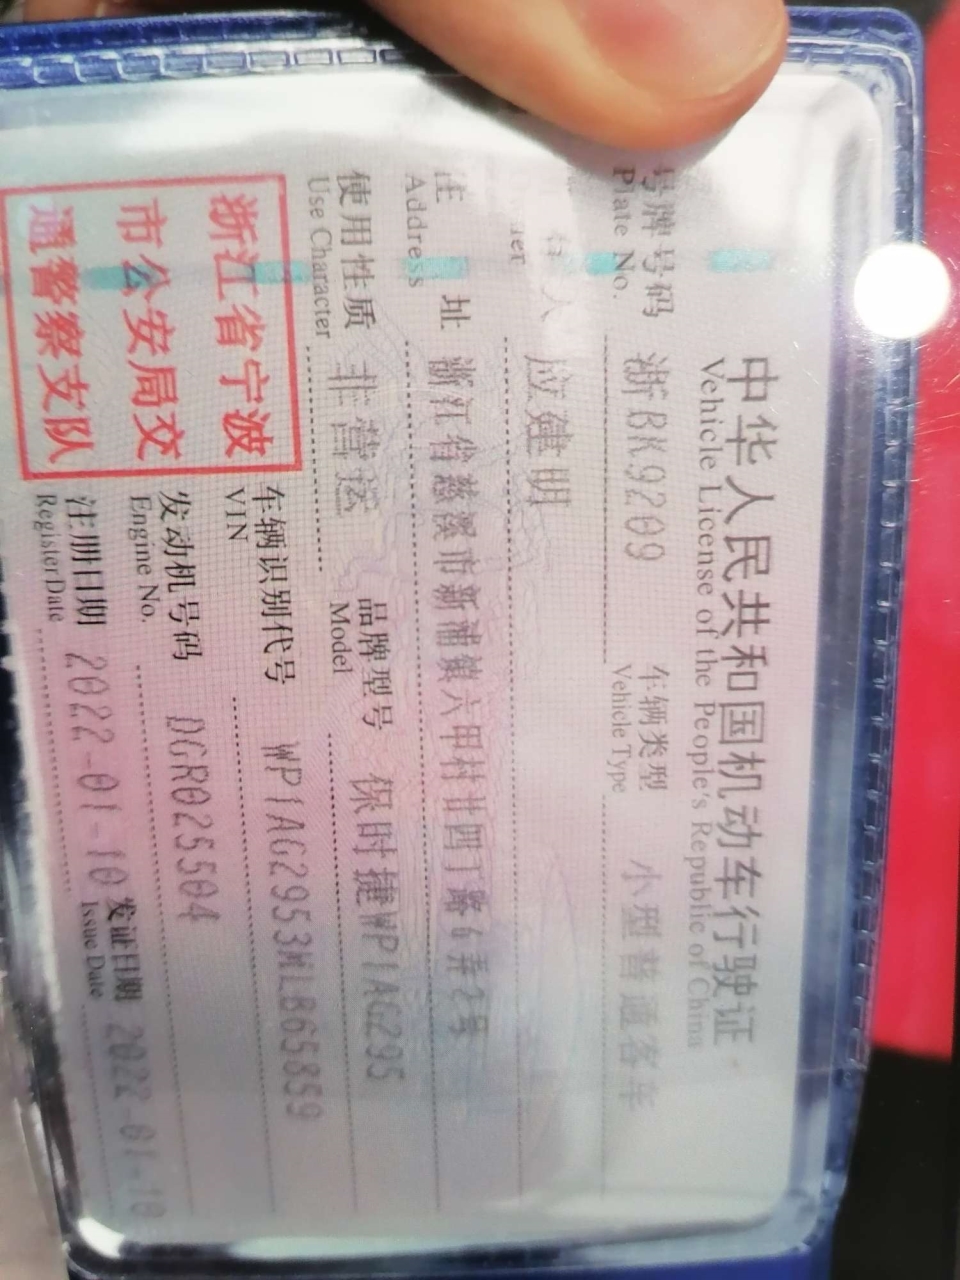 中华人民共和国机动车行驶证
Vehicle License of the People's Republic of China
号牌号码 浙BK9209 车辆类型 小型普通客车
Plate No. Vehicle Type
人 应建明
住 址 浙江省慈溪市新浦镇六甲村廿四丁路6弄2号
Address
使用性质 非营运 品牌型号 保时捷WP1AG295
Use Character Model
浙江省宁波
市公安局交
通警察支队
车辆识别代号 WP1AG2953MLB65859
VIN
发动机号码 DGR025504
Engine No.
注册日期 2022-01-10 发证日期 2022-01-10
Register Date Issue Date